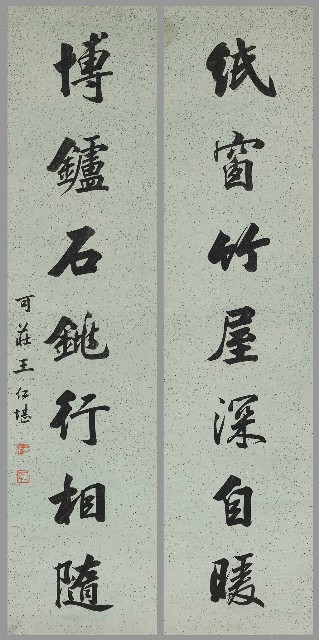 纸窗竹屋深自暖
博鑪石銚行相隨
可莊王仁堪